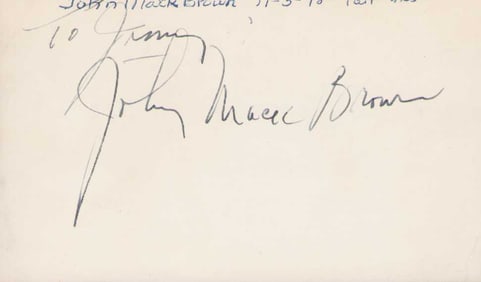 John Mack Brown 11-3-70
To Jimmy
John Mack Brown